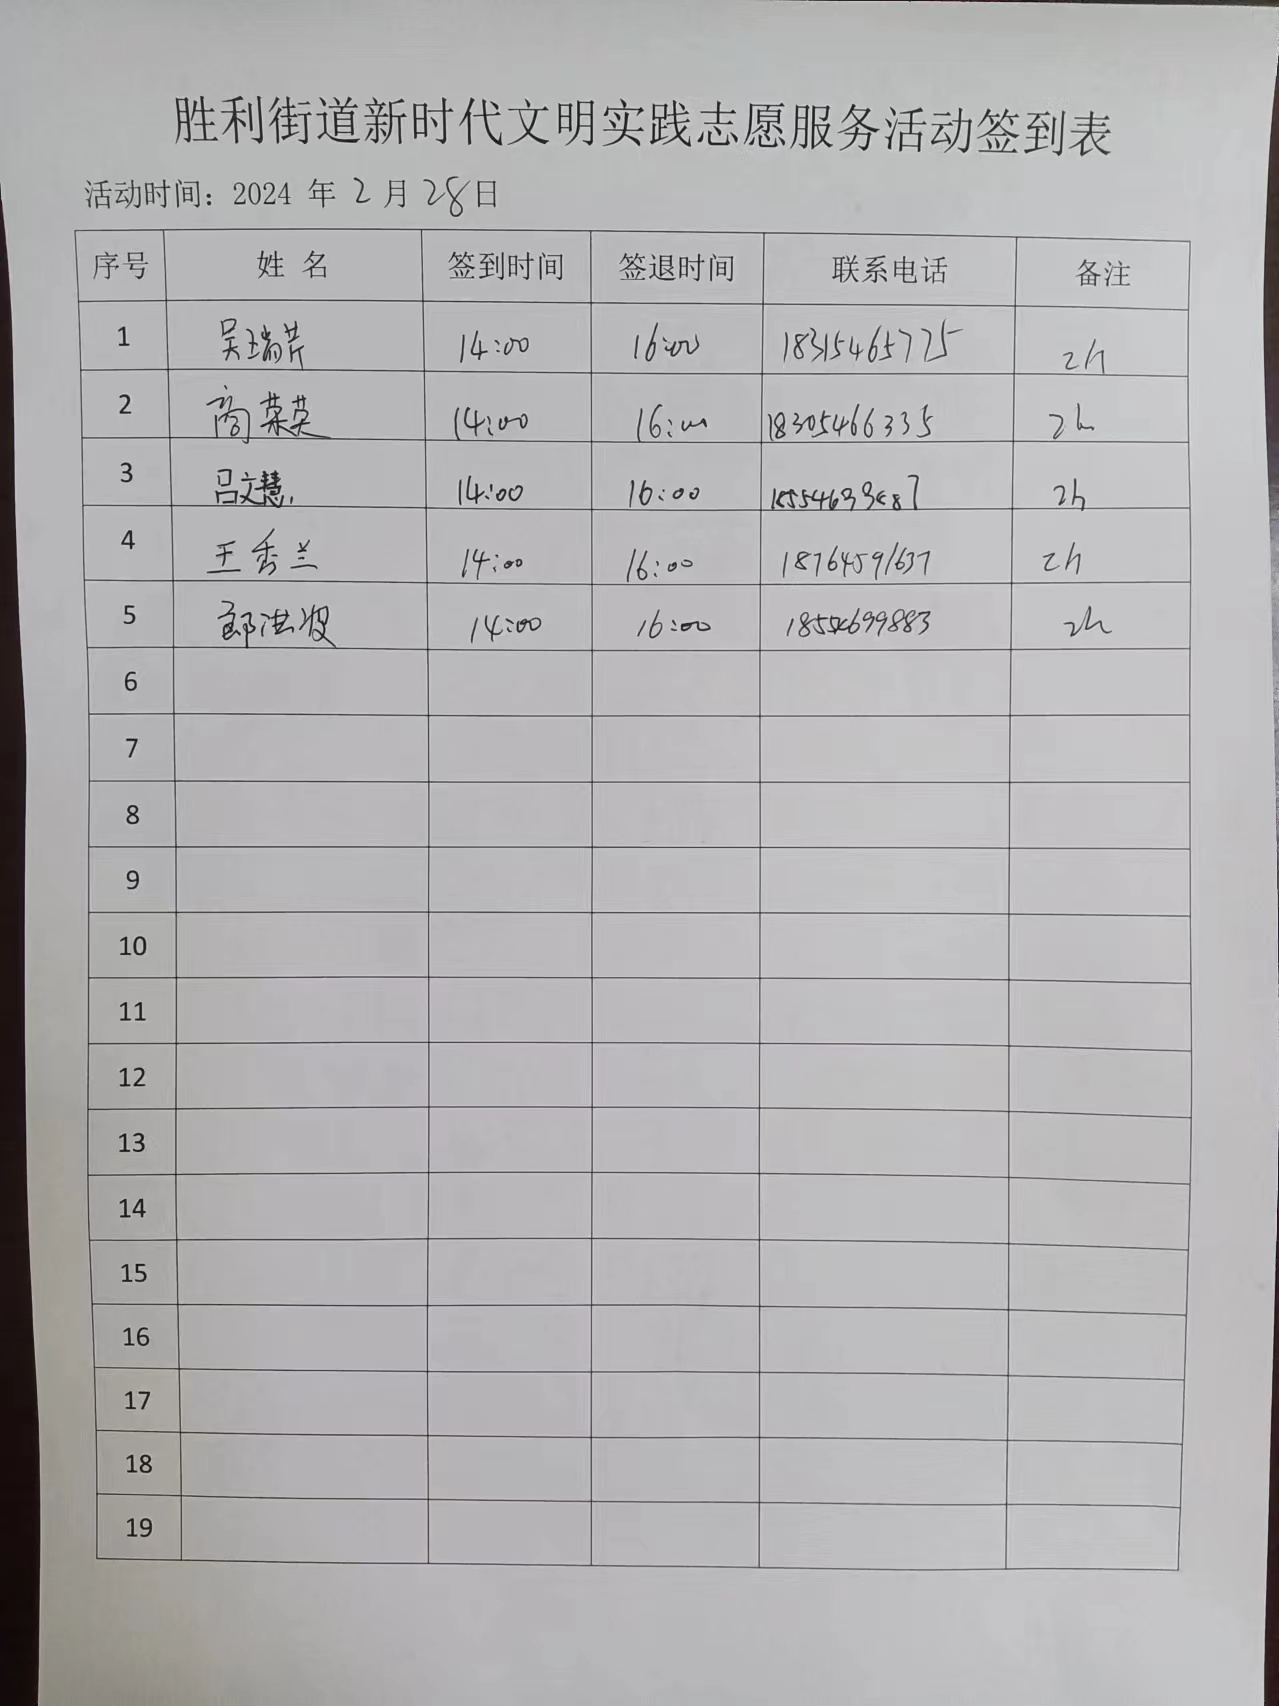 胜利街道新时代文明实践志愿服务活动签到表
活动时间：2024 年 2 月 28 日
序号 姓 名 签到时间 签退时间 联系电话 备注
1 吴瑞芹 14:00 16:00 18315465775 2h
2 商荣英 14:00 16:00 18305466335 2h
3 吕文慧 14:00 16:00 2h
4 王秀兰 14:00 16:00 18764591637 2h
5 郭洪波 14:00 16:00 18554699883 2h
6
7
8
9
10
11
12
13
14
15
16
17
18
19